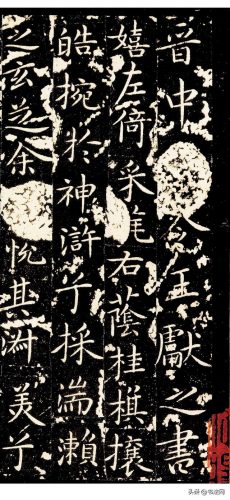 晋中令王獻之書
嬉左倚采旄右蔭桂旗攘
皓捥於神滸兮採湍瀨
之玄芝余悦其淑美兮